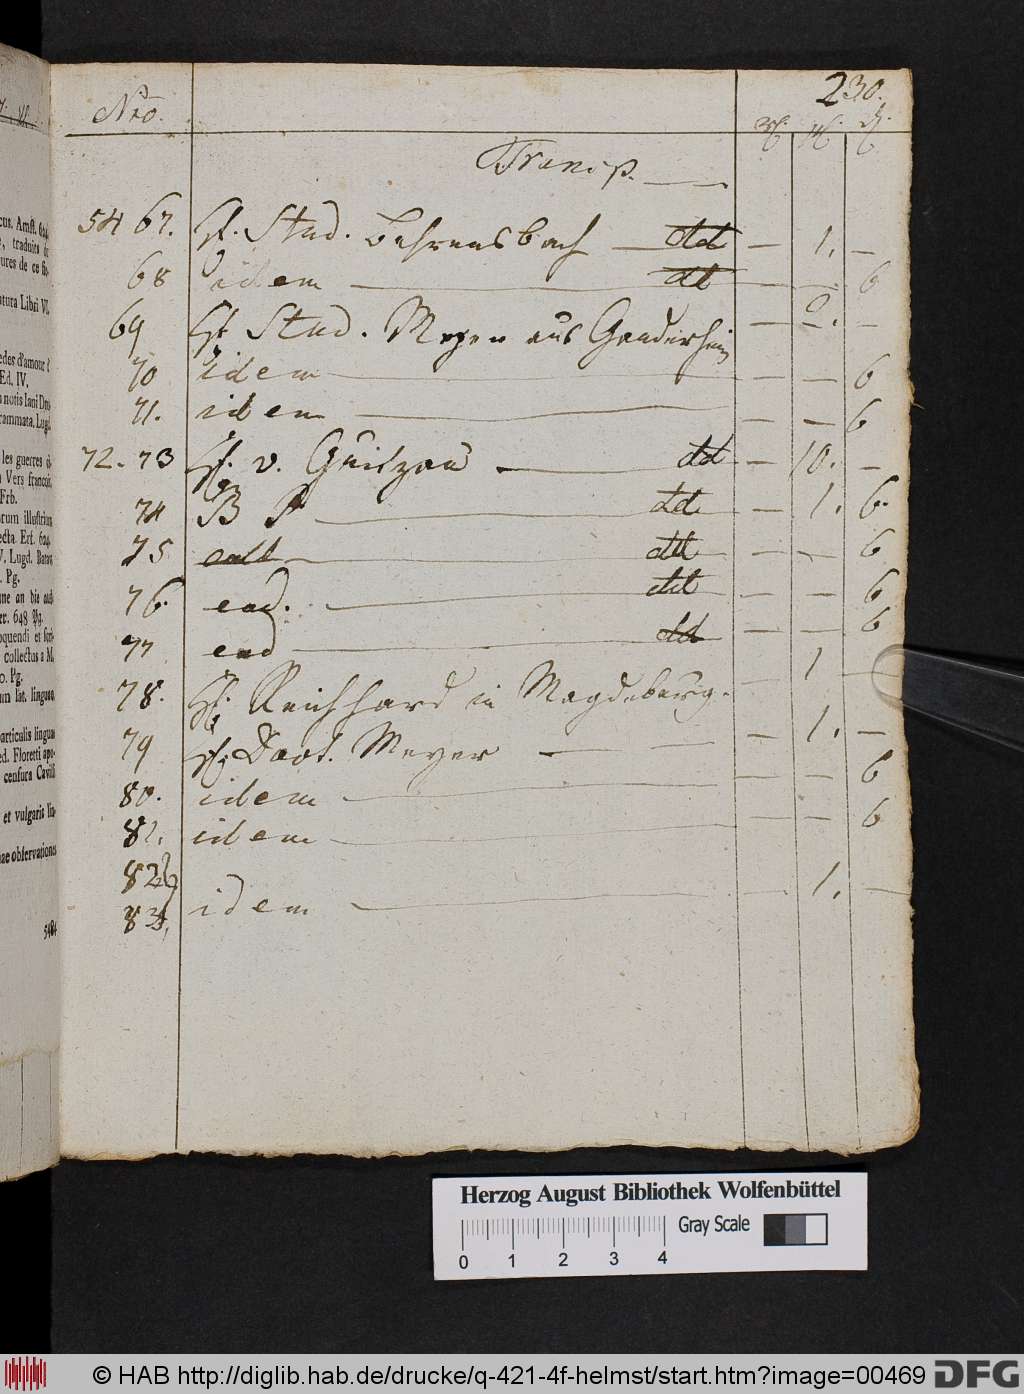 230.
Nro.
Transp.
54 67. H. Stud. Behrensbach dd — 1. —
68 idem dd — — 6
69 H. Stud. Meyen aus Gandersheim — 2. —
70 idem — — 6
71. idem — — 6
72. 73 H. v. dd — 10. —
74 B dd — 1. 6.
75 dd — — 6
76. ead. dd — — 6
77 ead dd — — 6
78. H. Reichhard in Magdeburg. — 1 —
79 H. Doct. Meyer — 1. —
80. idem — — 6
81. idem — — 6
82
83, idem — 1. —
cus. Amst. 624
traduits
ures de ce
atura Libri VI.
edes d'amour
Ed. IV.
notis Iani Dou
rammata. Lugd.
les guerres
Vers francois.
Frb.
orum illustrium
ecta. Erf. 624.
V. Lugd. Batav.
Pg.
er. 648 Pg.
oquendi et
collectus a M.
o. Pg.
um lat. linguae
particulis linguae
ed. Floretti
censura
et vulgaris
nae observationes
Herzog August Bibliothek Wolfenbüttel
0 1 2 3 4
Gray Scale
© HAB http://diglib.hab.de/drucke/q-421-4f-helmst/start.htm?image=00469 DFG